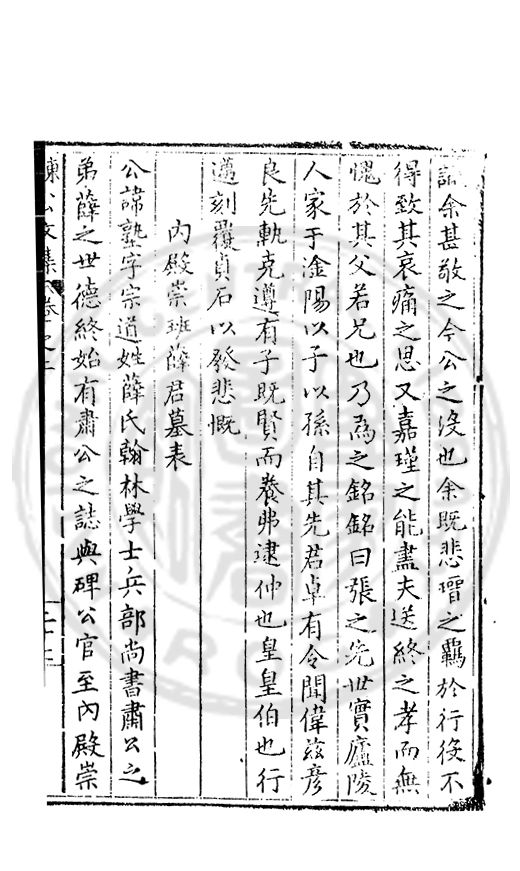 余甚敬之今公之沒也余既悲瑨之羈於行役不
得致其哀痛之思又嘉瑾之能盡夫送終之孝而無
愧於其父若兄也乃為之銘銘曰張之先世實廬陵
人家于淦陽以子以孫自其先君卓有令聞偉茲彥
良先軌克遵有子既賢而養弗逮仲也皇皇伯也行
邁刻覆貞石以發悲慨
內殿崇班薛君墓表
公諱塾字宗道姓薛氏翰林學士兵部尚書肅公之
弟薛之世德終始有肅公之誌與碑公官至內殿崇
陳公文集 卷之二